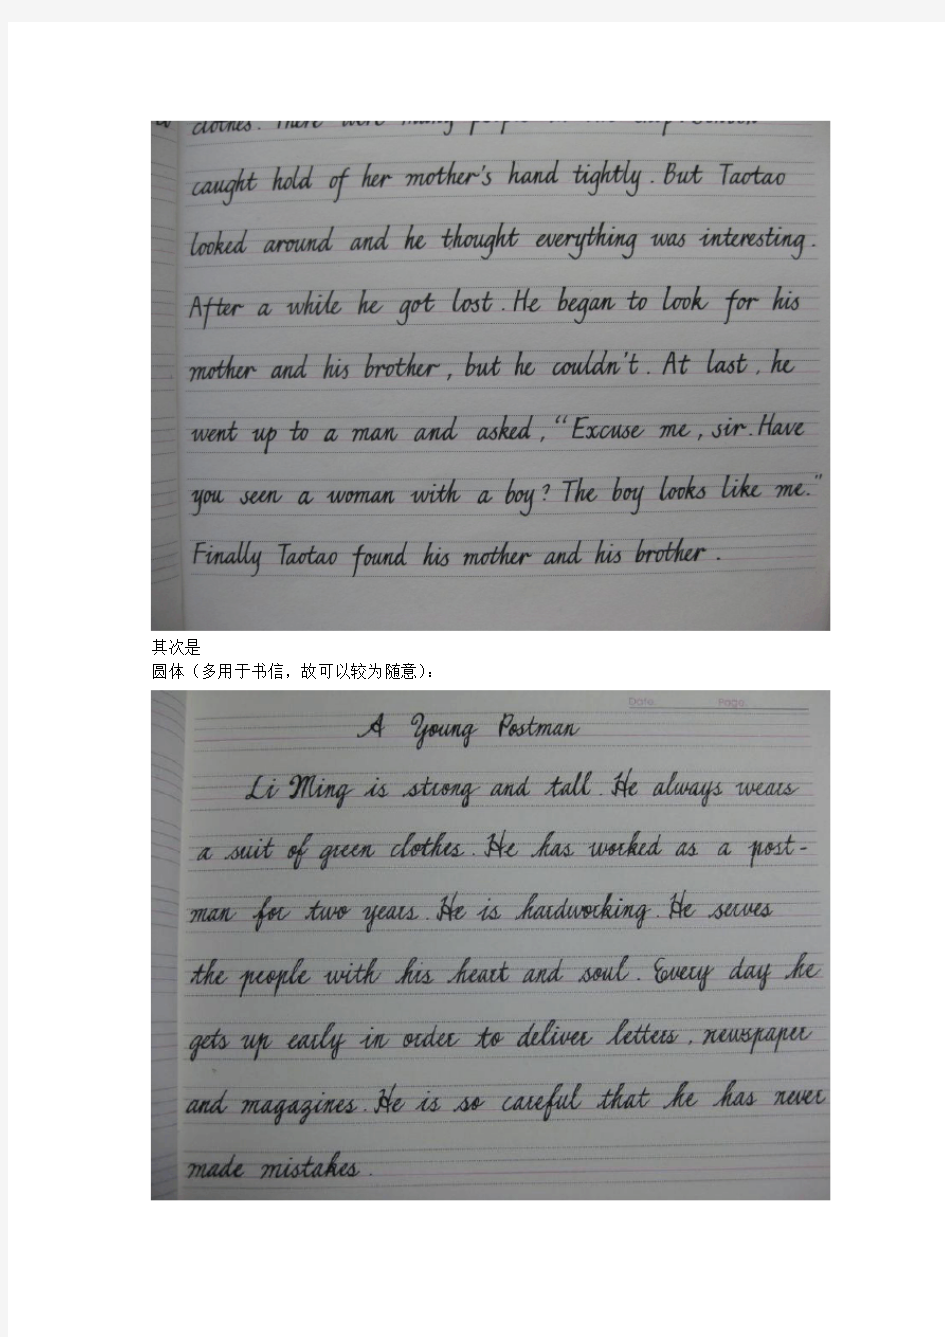 clothes. There were many people in the
caught hold of her mother's hand tightly. But Taotao
looked around and he thought everything was interesting.
After a while he got lost. He began to look for his
mother and his brother, but he couldn't. At last, he
went up to a man and asked, "Excuse me, sir. Have
you seen a woman with a boy? The boy looks like me."
Finally Taotao found his mother and his brother.
其次是
圆体（多用于书信，故可以较为随意）：
Date. Page.
A Young Postman
Li Ming is strong and tall. He always wears
a suit of green clothes. He has worked as a post-
man for two years. He is hardworking. He serves
the people with his heart and soul. Every day he
gets up early in order to deliver letters, newspaper
and magazines. He is so careful that he has never
made mistakes.